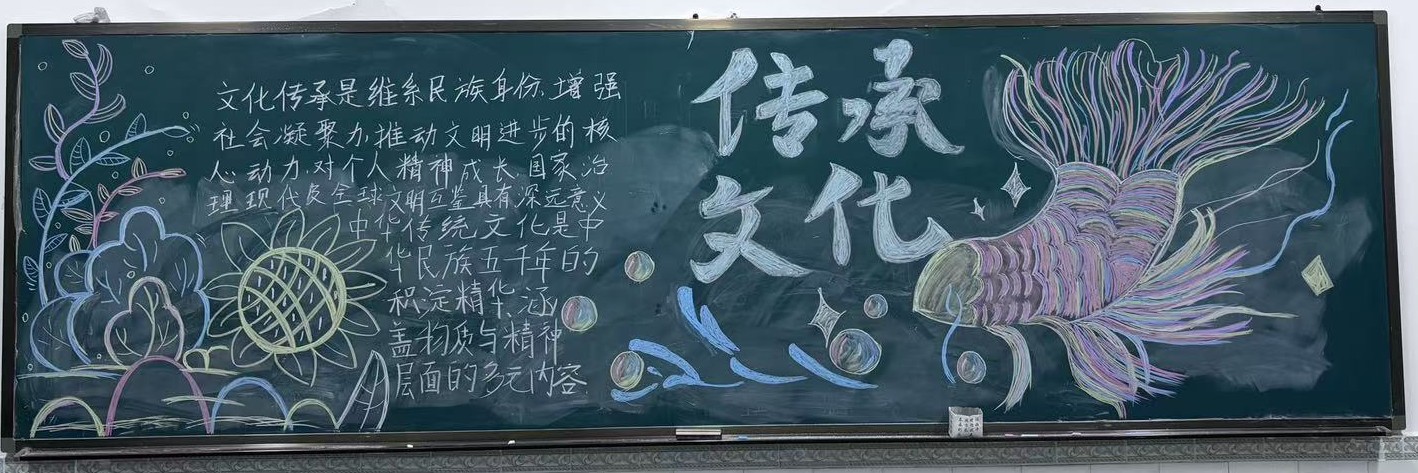 文化传承是维系民族身份、增强
社会凝聚力、推动文明进步的核
心动力,对个人精神成长、国家治
理现代及全球文明互鉴具有深远意义
中华传统文化是中
华民族五千年的
积淀精华,涵
盖物质与精神
层面的多元内容
传承
文化